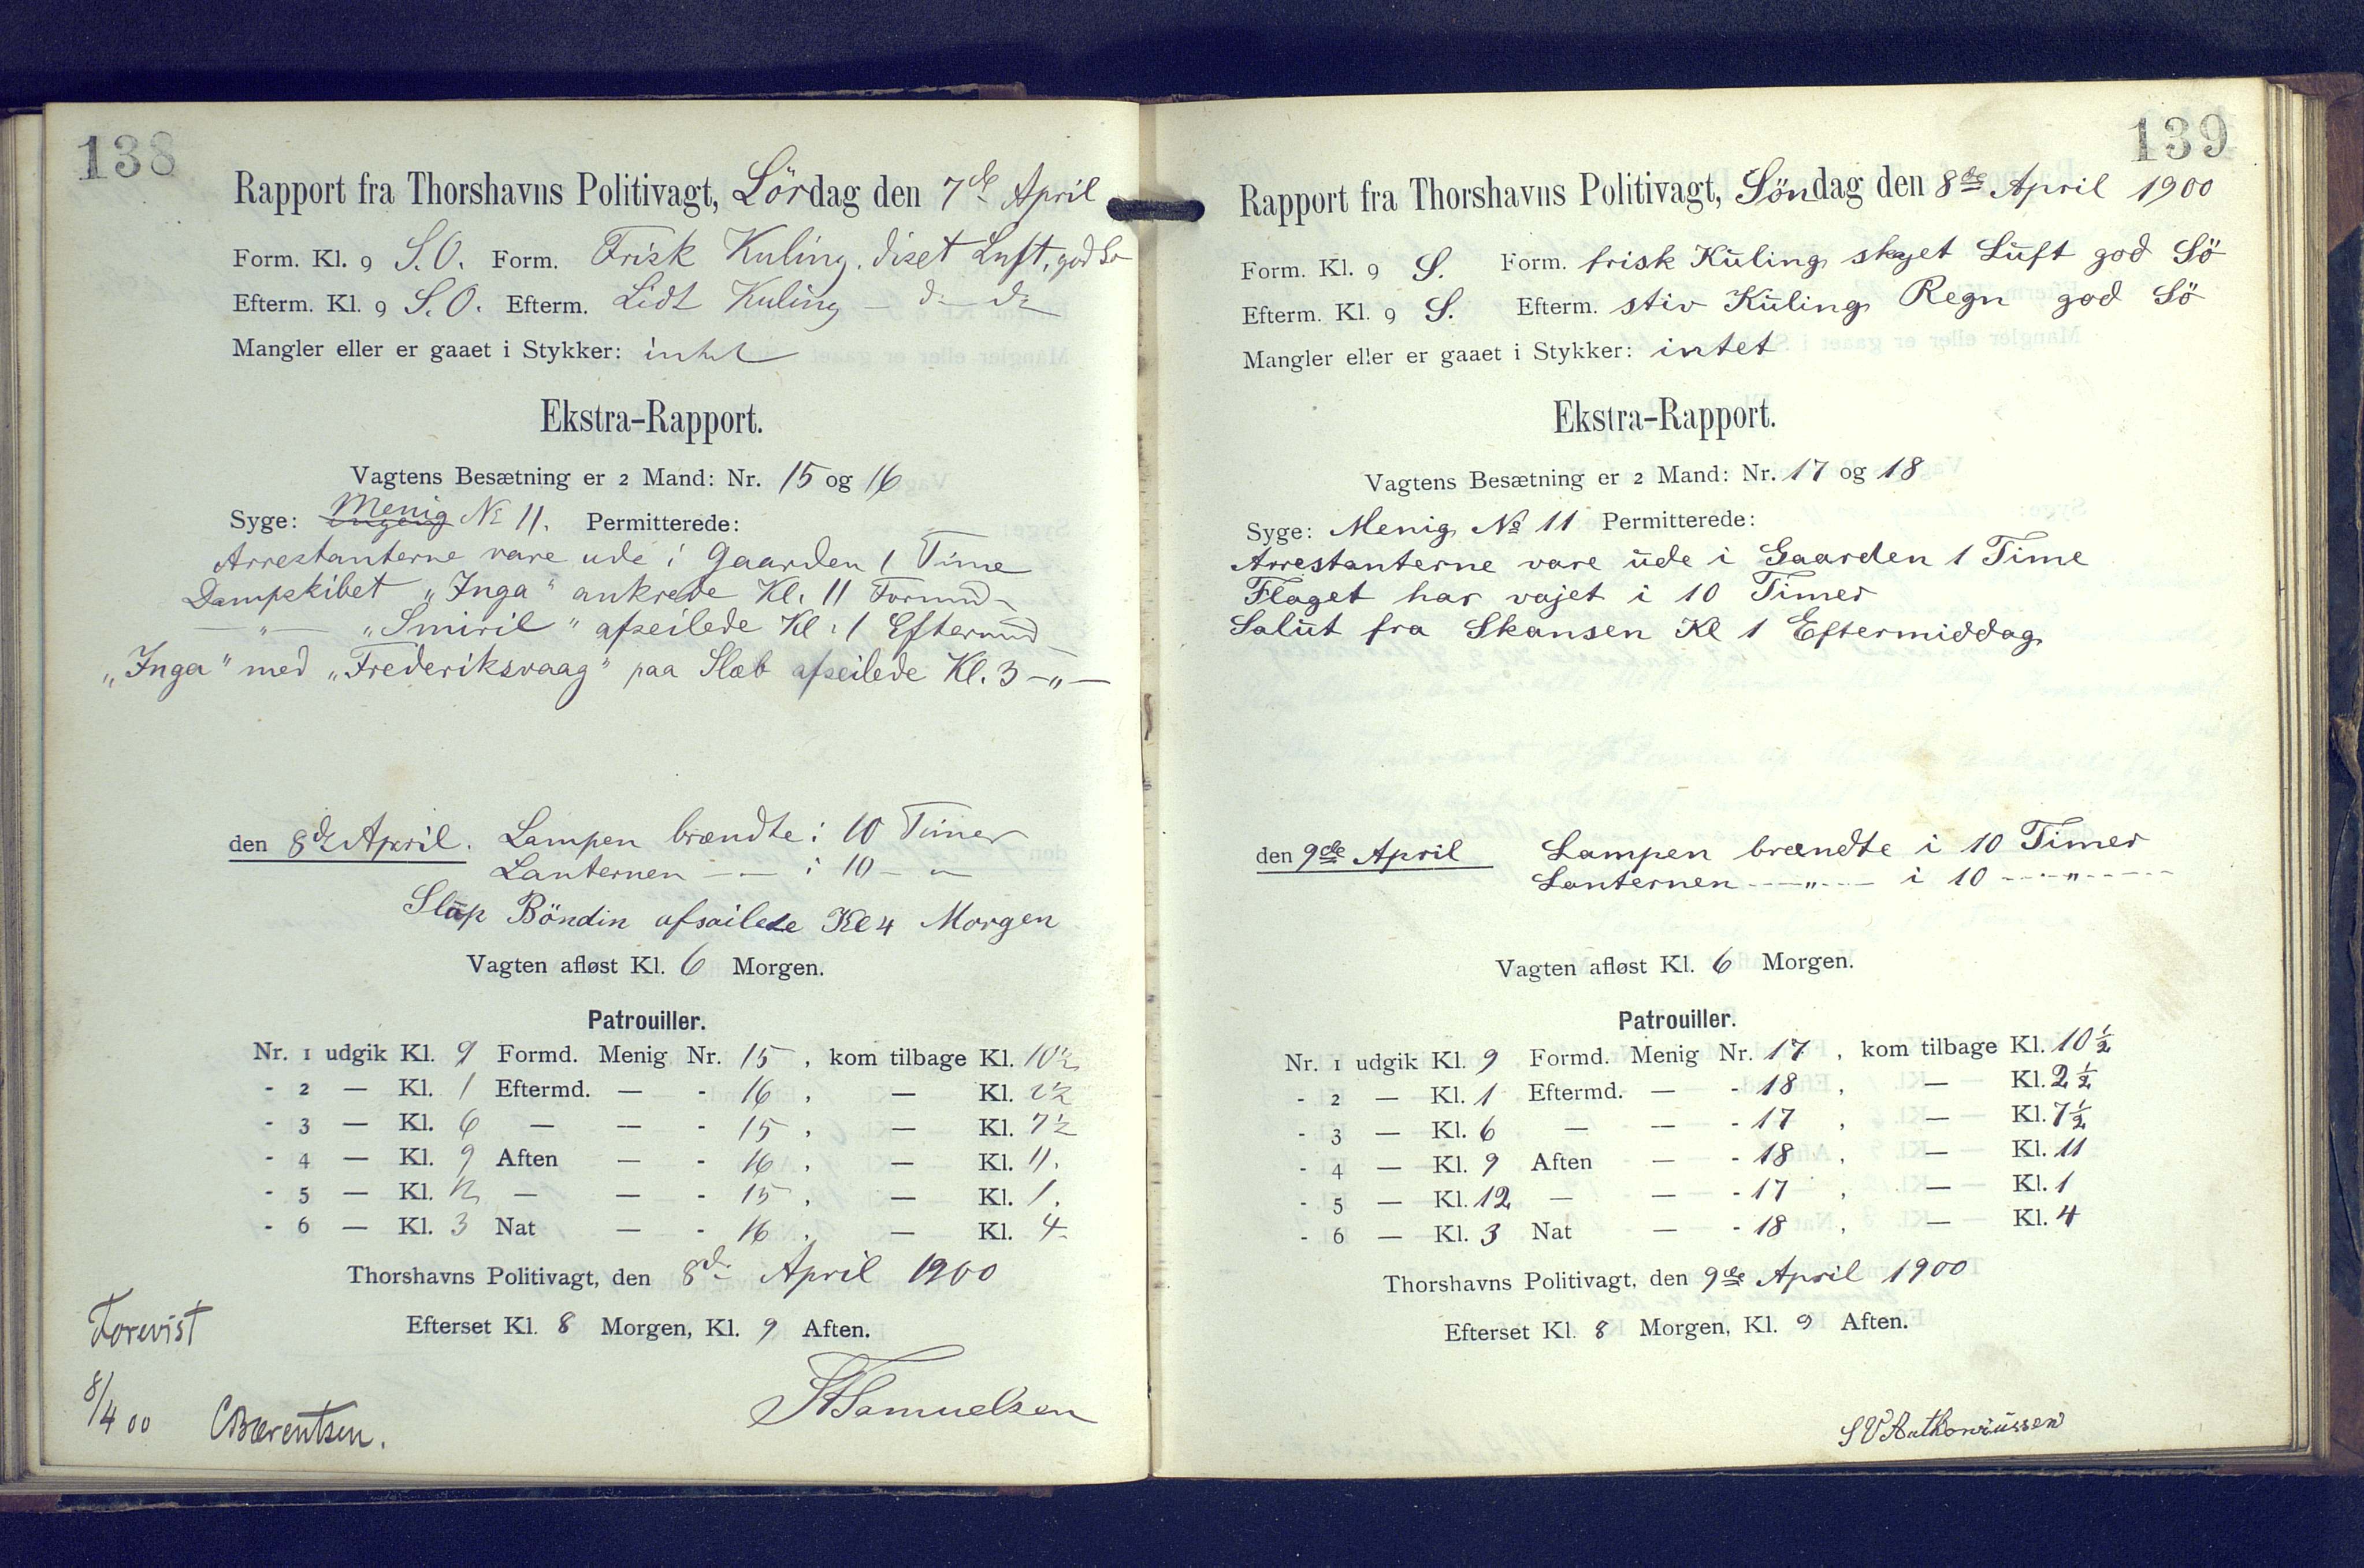 138
Rapport fra Thorshavns Politivagt, Lördag den 7de April
Form. Kl. 9 S.O. Form. Frisk Kuling, diset Luft, god Sö
Efterm. Kl. 9 S.O. Efterm. Lidt Kuling — do — do
Mangler eller er gaaet i Stykker: intet
Ekstra-Rapport.
Vagtens Besætning er 2 Mand: Nr. 15 og 16
Syge: Menig No 11. Permitterede:
Arrestanterne vare ude i Gaarden 1 Time
Dampskibet „Inga" ankrede Kl. 11 Formd
— " — „Smiril" afseilede Kl. 1 Eftermd
„Inga" med „Frederiksvaag" paa Slæb afseilede Kl. 3 — „ —
den 8de April. Lampen brændte i 10 Timer
Lanternen — — i 10 — „ —
Slup Böndin afsailede Kl 4 Morgen
Vagten afløst Kl. 6 Morgen.
Patrouiller.
Nr. 1 udgik Kl. 9 Formd. Menig Nr. 15, kom tilbage Kl. 10½
- 2 — Kl. 1 Eftermd. — - 16, — Kl. 2½
- 3 — Kl. 6 — — - 15, — Kl. 7½
- 4 — Kl. 9 Aften — - 16, — Kl. 11.
- 5 — Kl. 12 — — - 15, — Kl. 1.
- 6 — Kl. 3 Nat — - 16, — Kl. 4
Thorshavns Politivagt, den 8de April 1900
Efterset Kl. 8 Morgen, Kl. 9 Aften.
Forevist
8/4 00 CBærentsen.
Samuelsen
139
Rapport fra Thorshavns Politivagt, Söndag den 8de April 1900
Form. Kl. 9 S. Form. frisk Kuling skyet Luft god Sö
Efterm. Kl. 9 S. Efterm. stiv Kuling Regn god Sö
Mangler eller er gaaet i Stykker: intet
Ekstra-Rapport.
Vagtens Besætning er 2 Mand: Nr. 17 og 18
Syge: Menig No 11 Permitterede:
Arrestanterne vare ude i Gaarden 1 Time
Flaget har vajet i 10 Timer
Salut fra Skansen Kl 1 Eftermiddag
den 9de April Lampen brændte i 10 Timer
Lanternen — „ — i 10 — „ —
Vagten afløst Kl. 6 Morgen.
Patrouiller.
Nr. 1 udgik Kl. 9 Formd. Menig Nr. 17, kom tilbage Kl. 10½
- 2 — Kl. 1 Eftermd. — - 18, — Kl. 2½
- 3 — Kl. 6 — — - 17, — Kl. 7½
- 4 — Kl. 9 Aften — - 18, — Kl. 11
- 5 — Kl. 12 — — - 17, — Kl. 1
- 6 — Kl. 3 Nat — - 18, — Kl. 4
Thorshavns Politivagt, den 9de April 1900
Efterset Kl. 8 Morgen, Kl. 9 Aften.